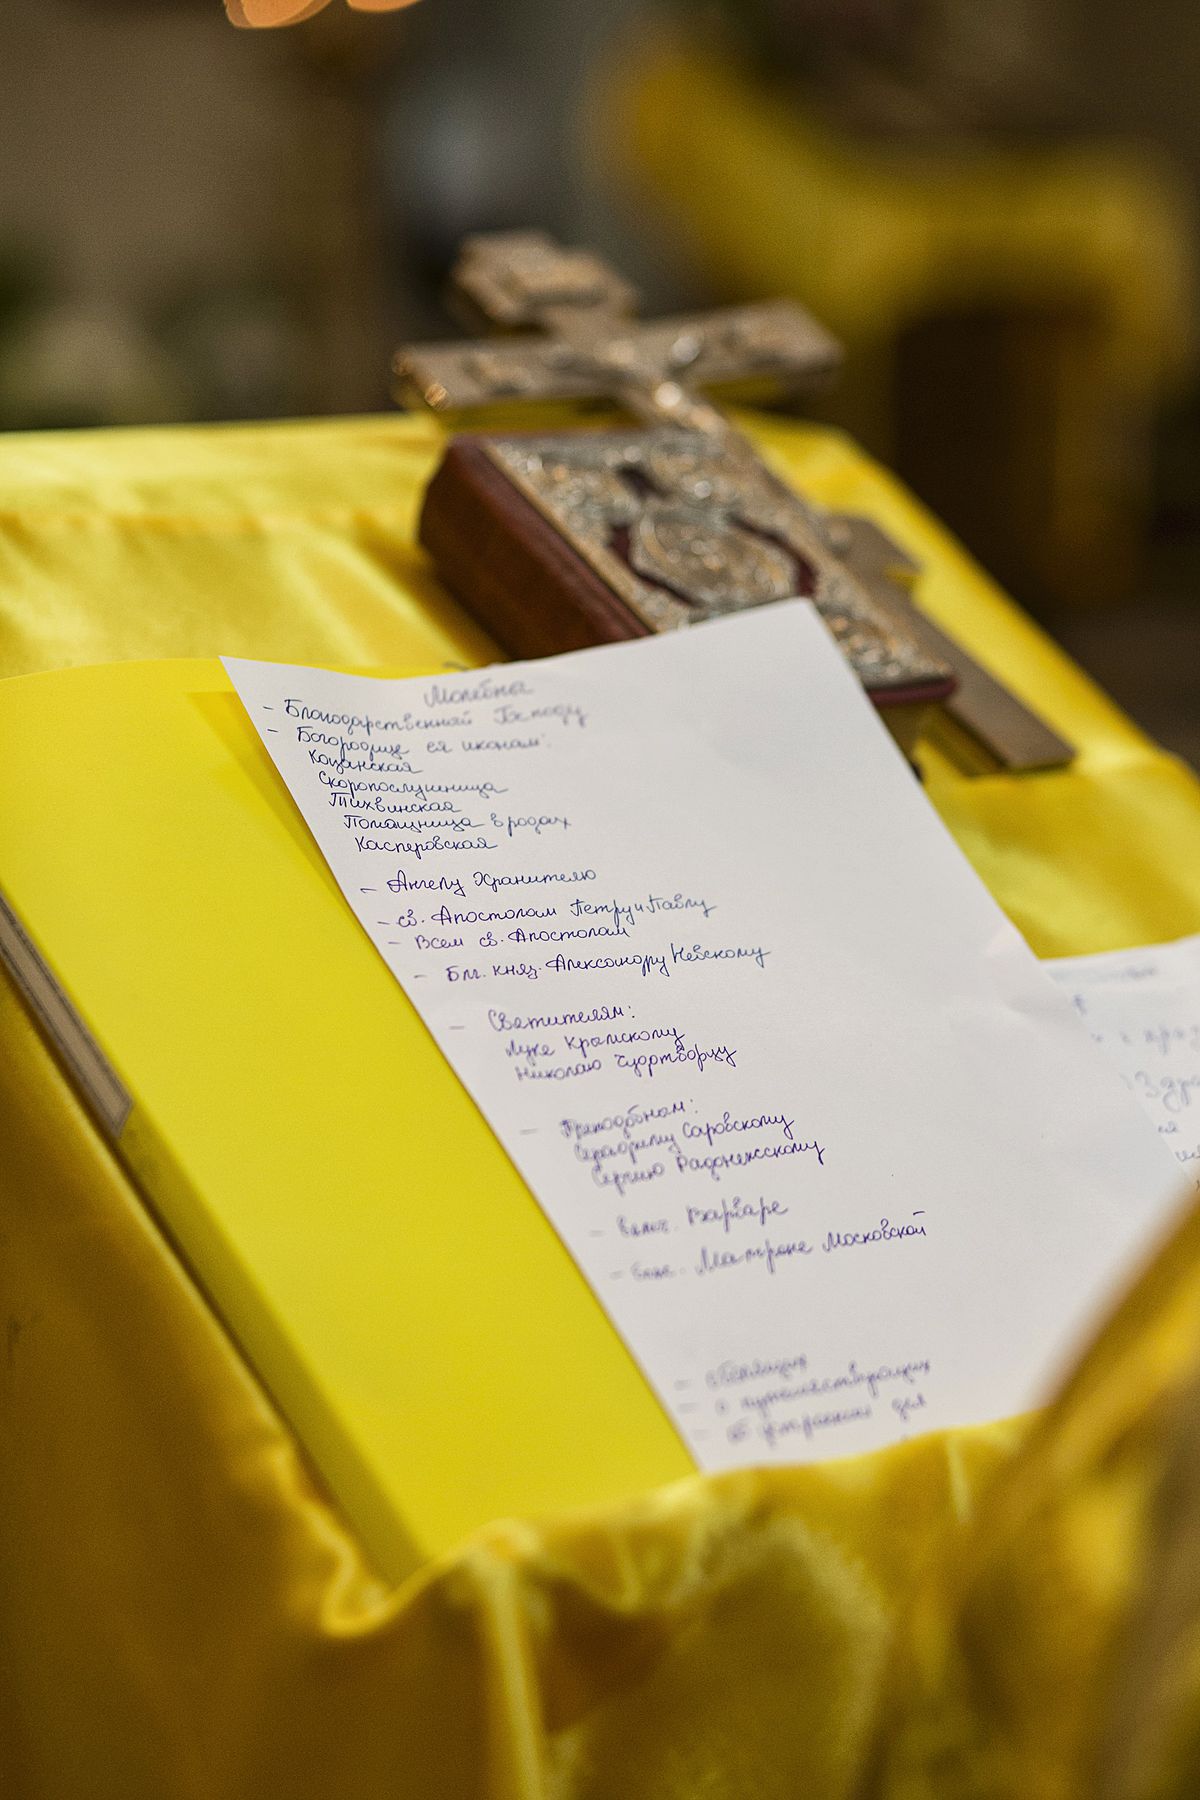 Молебны
- Благодарственный Господу
- Богородице ея иконам:
Казанская
Скоропослушница
Тихвинская
Помощница в родах
Касперовская
- Ангелу Хранителю
- св. Апостолам Петру и Павлу
- Всем св. Апостолам
- Блг. княз. Александру Невскому
- Святителям:
Луке Крымскому
Николаю Чудотворцу
- Преподобным:
Серафиму Саровскому
Сергию Радонежскому
- Варваре
- Матроне Московской
- о болящих
- о путешествующих